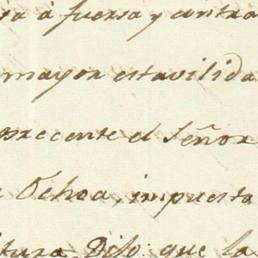 ia á fuersa y contra
mayor estavilida
precente el Señor
Ochoa, impuesta
tura, Diso: que la